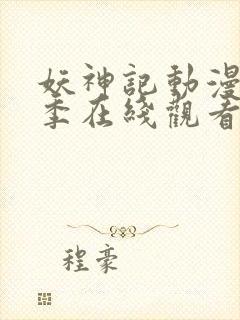 妖神記動漫
季在綫觀看
程豪